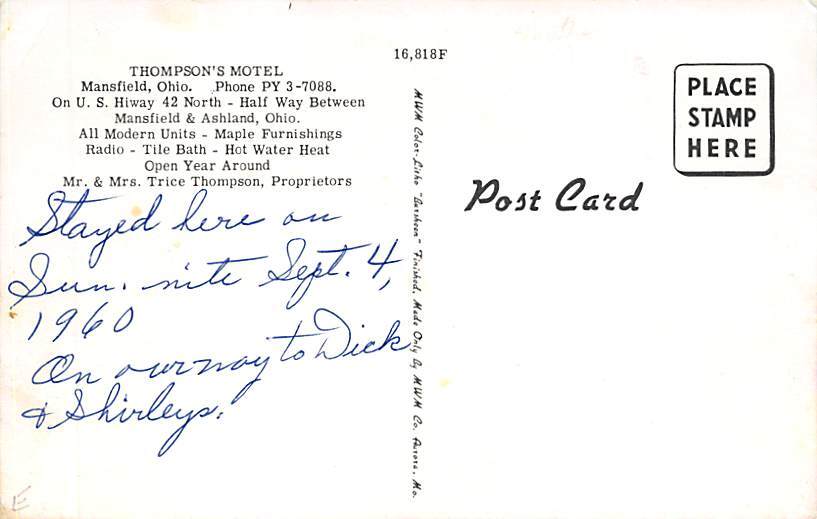 16,818F
THOMPSON'S MOTEL
Mansfield, Ohio. Phone PY 3-7088.
On U. S. Hiway 42 North - Half Way Between
Mansfield & Ashland, Ohio.
All Modern Units - Maple Furnishings
Radio - Tile Bath - Hot Water Heat
Open Year Around
Mr. & Mrs. Trice Thompson, Proprietors
Stayed here on
Sun. nite Sept. 4,
1960
On our way to Dick
& Shirleys.
MWM Color-Litho "Aursheen" Finished. Made Only By MWM Co. Aurora, Mo.
Post Card
PLACE
STAMP
HERE
E